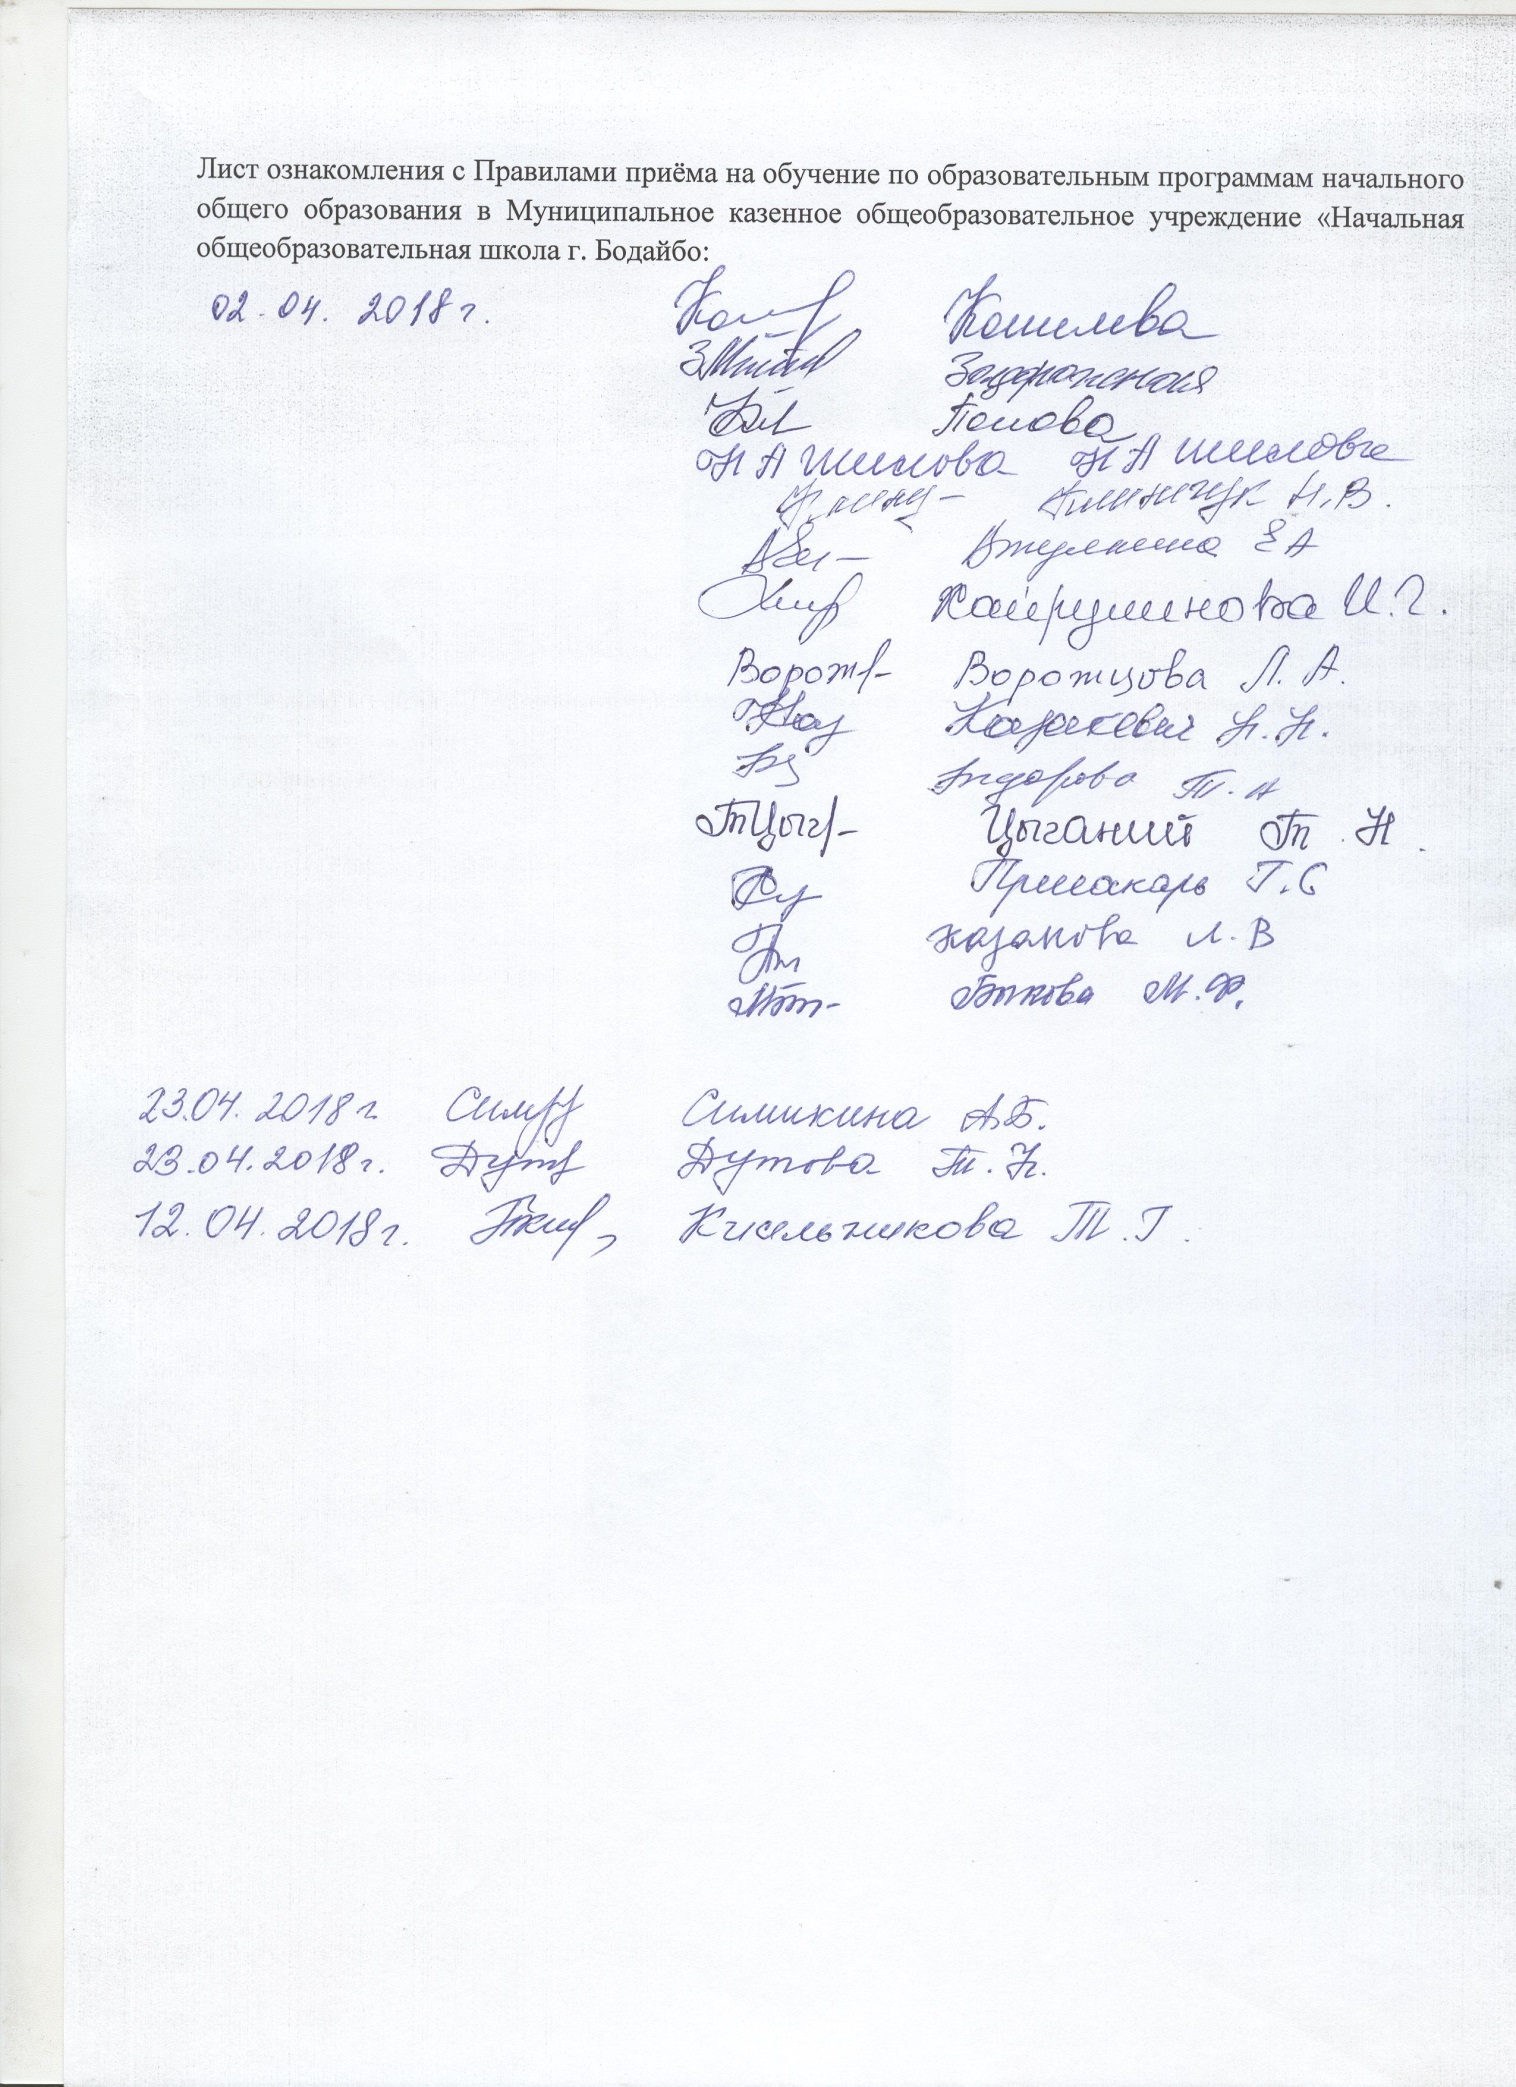 Лист ознакомления с Правилами приёма на обучение по образовательным программам начального
общего образования в Муниципальное казенное общеобразовательное учреждение «Начальная
общеобразовательная школа г. Бодайбо:
02.04. 2018г. Кошелева
Задорожная
Попова
Н А Шилова Н А Шилова
Климчук Н.В.
Е А
Хайрулинова И.Г.
Ворожцова Л. А.
Казакевич Н.Н.
Т. А
Цыганий Т. Н.
Примакарь Г.С
Казакова Л. В
Быкова М.Ф.
23.04. 2018г Симикина А.Б.
23.04.2018г. Дутова Т.Н.
12.04.2018г. Кисельникова Т.Г.